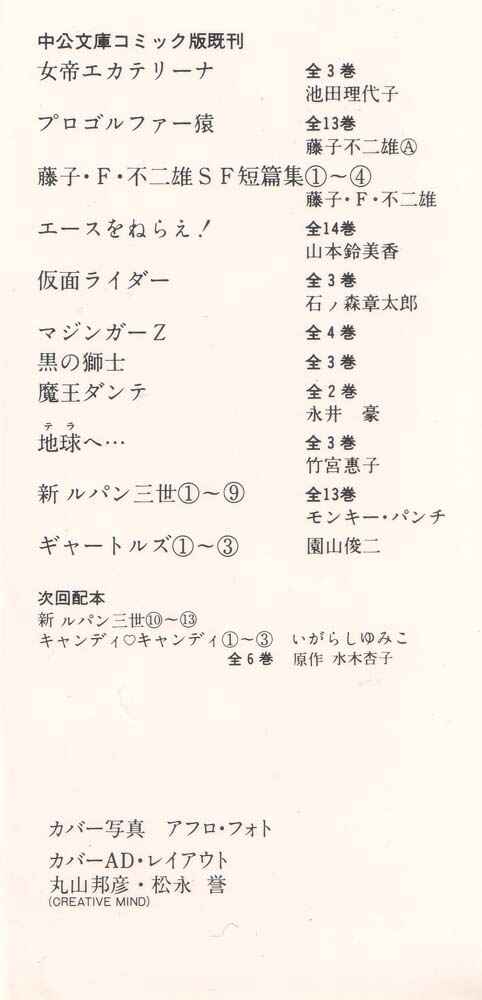 中公文庫コミック版既刊
女帝エカテリーナ 全3巻
池田理代子
プロゴルファー猿 全13巻
藤子不二雄Ⓐ
藤子・F・不二雄SF短篇集①〜④
藤子・F・不二雄
エースをねらえ! 全14巻
山本鈴美香
仮面ライダー 全3巻
石ノ森章太郎
マジンガーZ 全4巻
黒の獅士 全3巻
魔王ダンテ 全2巻
永井 豪
テラ
地球へ… 全3巻
竹宮惠子
新 ルパン三世①〜⑨ 全13巻
モンキー・パンチ
ギャートルズ①〜③ 園山俊二
次回配本
新 ルパン三世⑩〜⑬
キャンディ♡キャンディ①〜③ いがらしゆみこ
全6巻 原作 水木杏子
カバー写真 アフロ・フォト
カバーAD・レイアウト
丸山邦彦・松永 誉
(CREATIVE MIND)